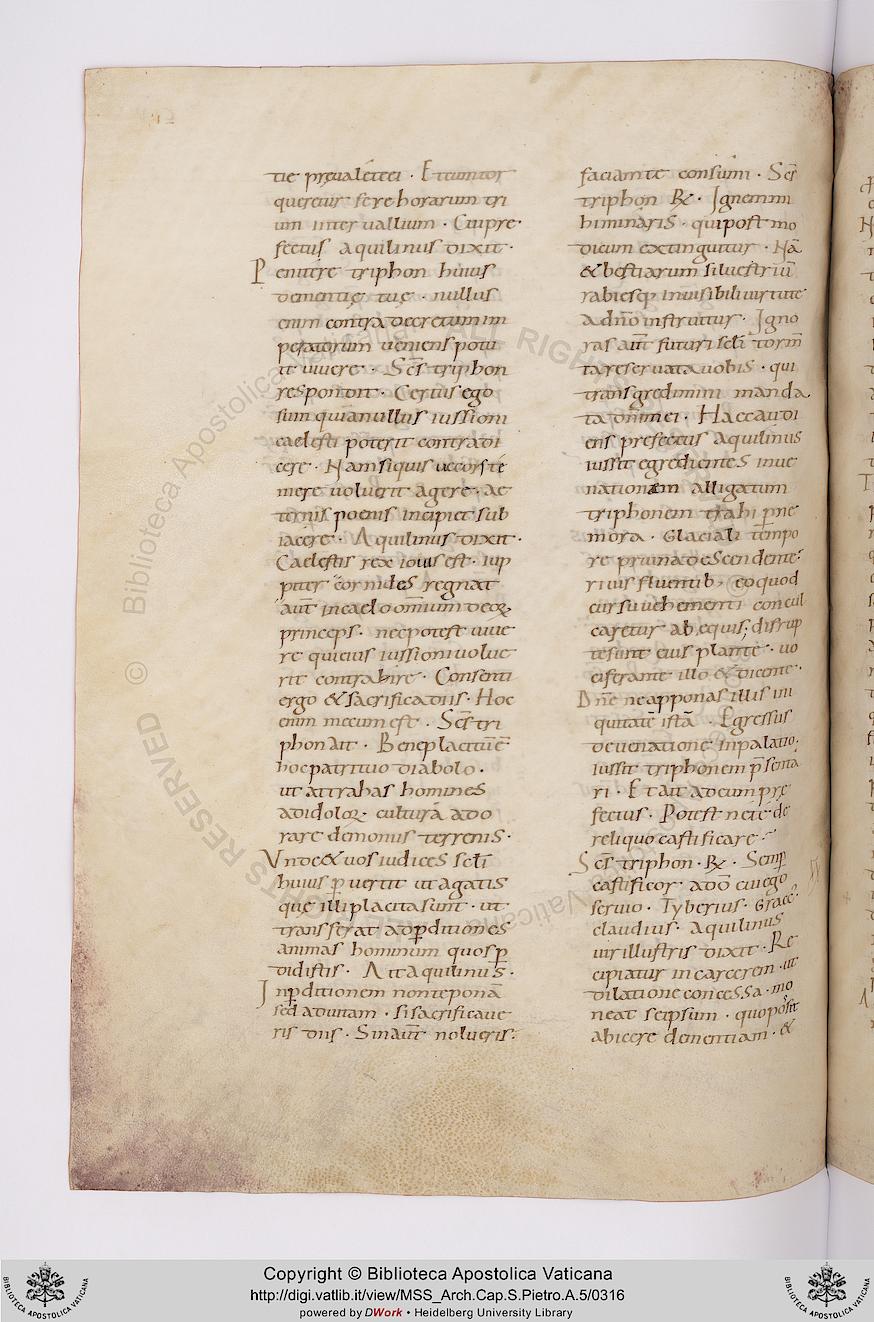 tie prevaletei · Et cum tor
queretur fere horarum tri
um inter uallium · Cui pre
fectus aquilinus dixit ·
Penitere triphon huius
dementię tuę · nullus
enim contra decretum im
peratorum ueniens potu
it uiuere · Scs triphon
respondit · Certus ego
sum quia nullus iussioni
caelesti poterit contradi
cere · Nam siquis uecorste
mere uoluerit agere · ae
ternis poenis incipiet sub
iacere · Aquilinus dixit ·
Caelestis rex iouis est · iup
piter cornides regnat
aut in caelo omnium deoꝝ
princeps · nec potest uiue
re qui eius iussioni uolue
rit contrahire · Consenti
ergo & sacrifica diis · Hoc
enim mecum est · Scs tri
phon ait · Beneplacitū ē
hoc patri tuo diabolo ·
ut attrahas homines
ad idoloꝝ culturā ado
rare demoniis terrenis ·
Unde & uos iudices seli
huius ꝑuertit ut agatis
quę illi placita sunt · ut
transferat ad ꝑditiones
animas hominum quos ꝑ
didistis · Ait aquilinus ·
In ꝑditionem non te ponā
sed ad uitam · si sacrificaue
ris diis · Sin aūt nolueris ·
faciam te consumi · Scs
triphon R · Ignem mi
hi minaris · qui post mo
dicum extinguitur · Nā
& bestiarum siluestriū
rabiesq; inuisibili uirtute
a dn̄o instruitur · Igno
ras aūt futuri seli torm̄
ta reseruata uobis · qui
transgredimini manda
ta dn̄i mei · Haec audi
ens prefectus aquilinus
iussit egredientes in ue
nationem alligatum
triphonem trahi ꝑ ne
mora · Glaciali tempo
re pruina descendente ·
riuis fluentib; eo quod
cursu uehementi concul
caretur ab equis; disrup
te sunt eius plante · uo
ciferante illo & dicente ·
Dn̄e ne apponas illis ini
quitatē istā · Egressus
de uenatione in palatio ·
iussit triphonem p̄senta
ri · Et ait ad eum prę
fectus · Potes tne te de
reliquo castificare ·
Scs triphon · R · Semꝑ
castificor a dō cui ego
seruio · Tyberius · Gracc ·
claudius · aquilinus
uir illustris dixit · Re
cipiatur in carcerem · ut
dilatione concessa · mo
neat seipsum · quo possit
abicere dementiam · &
Copyright © Biblioteca Apostolica Vaticana
http://digi.vatlib.it/view/MSS_Arch.Cap.S.Pietro.A.5/0316
powered by DWork • Heidelberg University Library